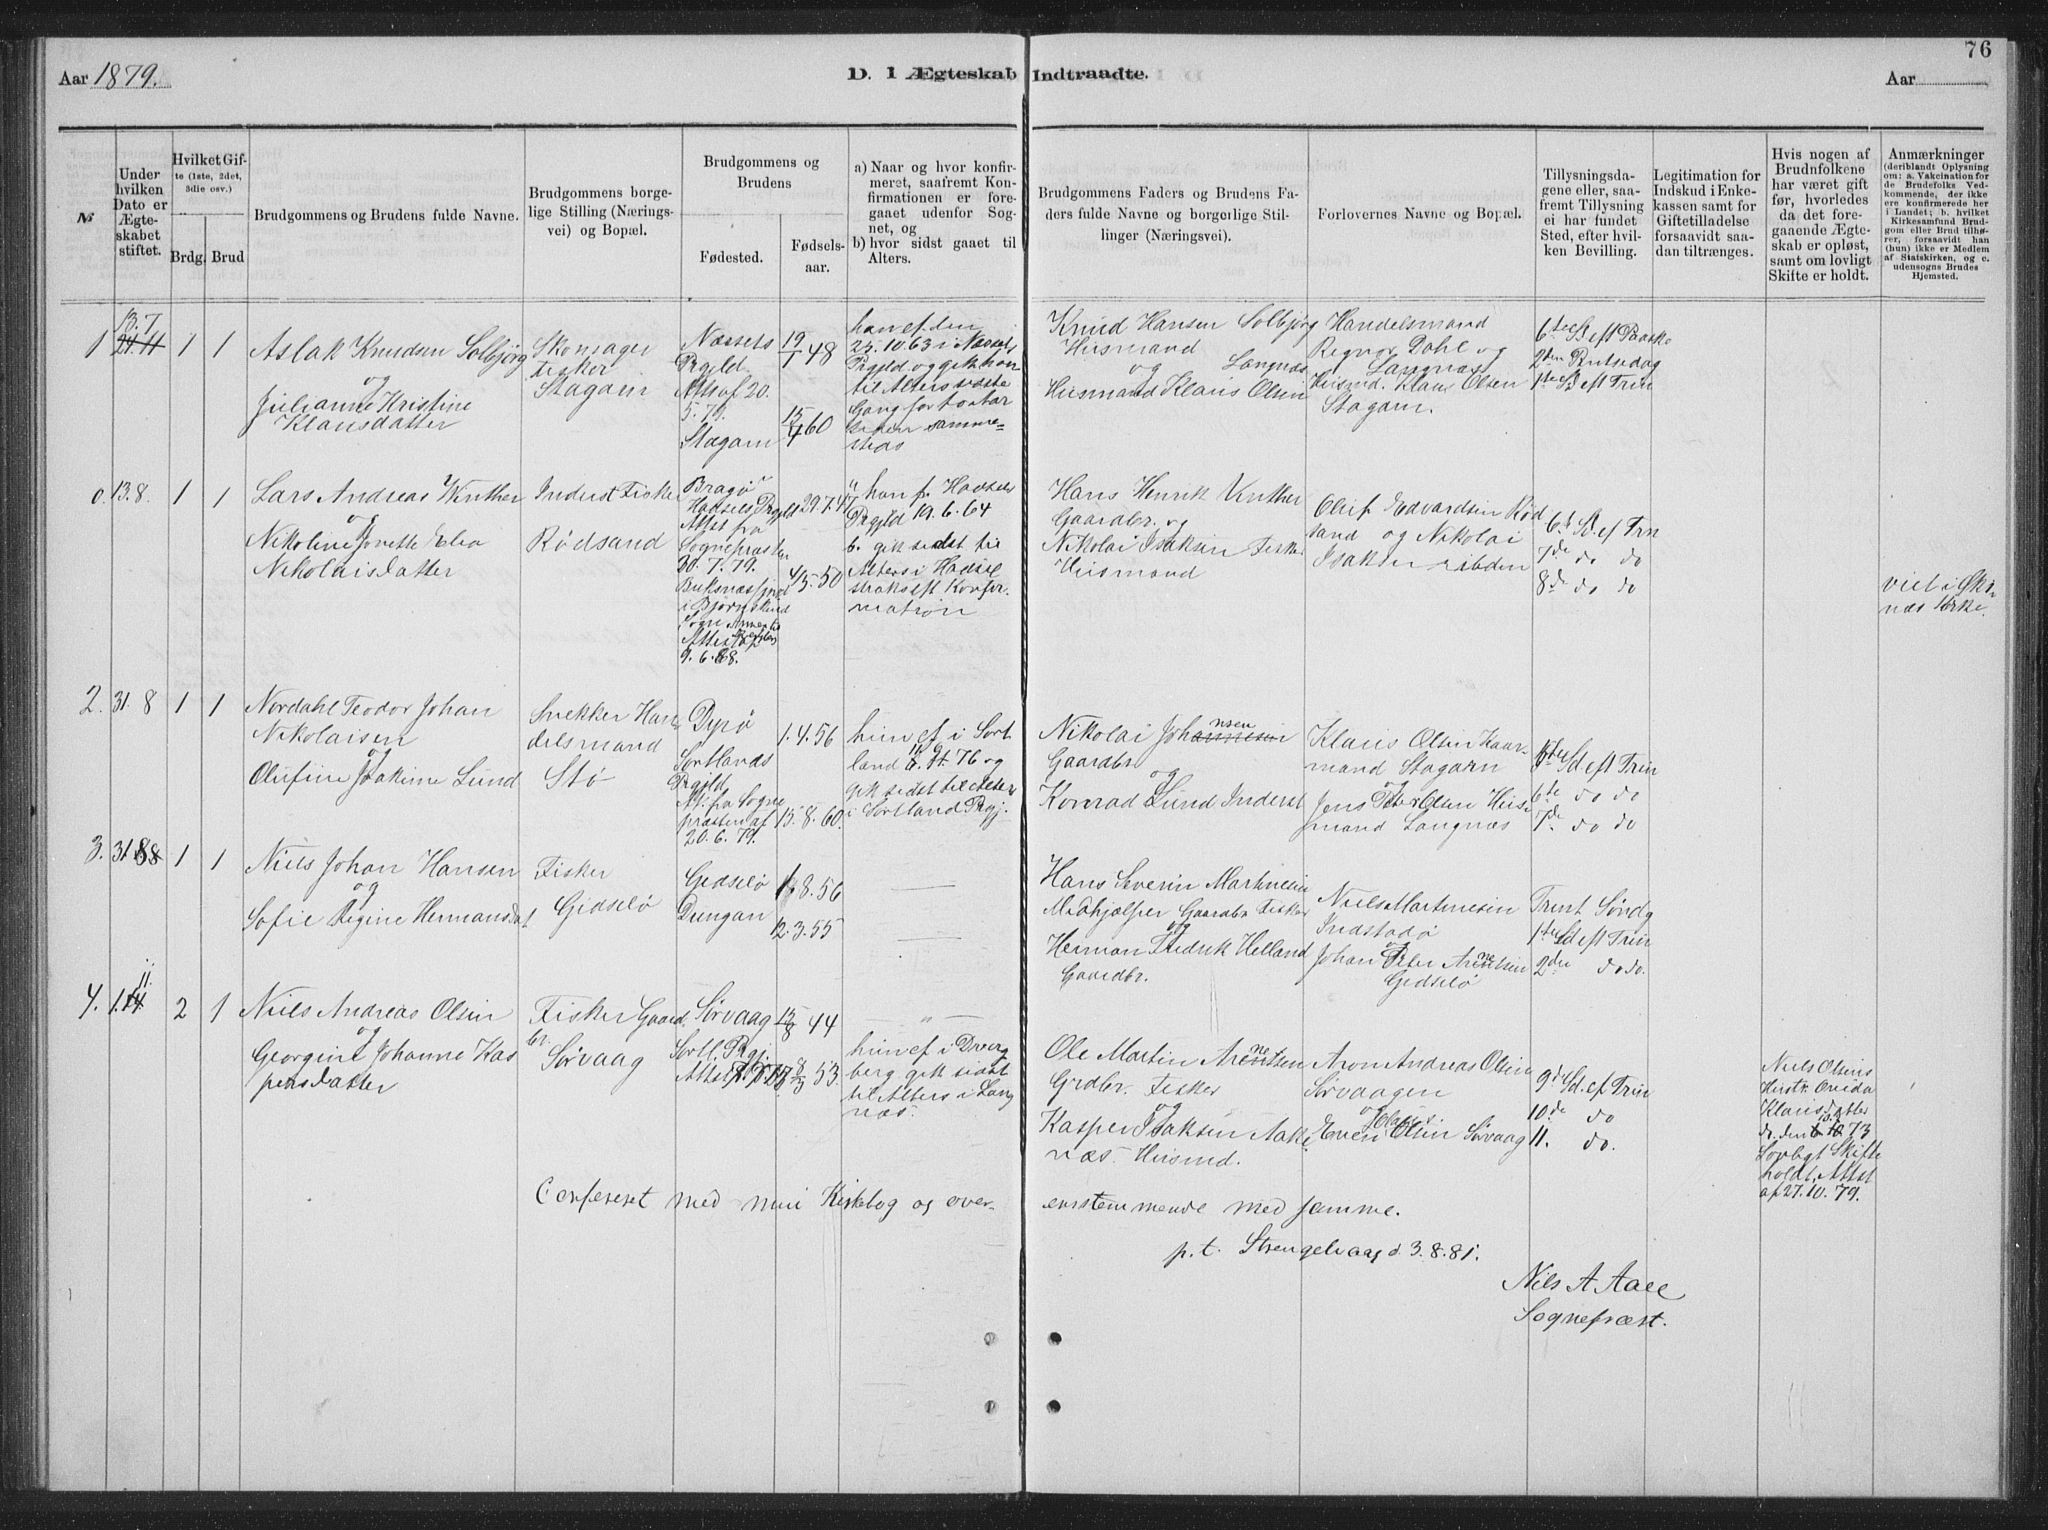 76
Aar 1879.
D. i Ægteskab Indtraadte.
Aar
№
Under hvilken Dato er Ægteskabet stiftet.
Hvilket Gifte (1ste, 2det, 3die osv.)
Brdg.
Brud
Brudgommens og Brudens fulde Navne.
Brudgommens borgelige Stilling (Næringsvei) og Bopæl.
Brudgommens og Brudens
Fødested.
Fødselsaar.
a) Naar og hvor konfirmeret, saafremt Konfirmationen er foregaaet udenfor Sognet, og
b) hvor sidst gaaet til Alters.
Brudgommens Faders og Brudens Faders fulde Navne og borgerlige Stillinger (Næringsvei).
Forlovernes Navne og Bopæl.
Tillysningsdagene eller, saafremt Tillysning ei har fundet Sted, efter hvilken Bevilling.
Legitimation for Indskud i Enkekassen samt for Giftetilladelse forsaavidt saadan tiltrænges.
Hvis nogen af Brudnfolkene har været gift før, hvorledes da det foregaaende Ægteskab er opløst, samt om lovligt Skifte er holdt.
Anmærkninger
(deriblandt Oplysning om: a. Vakcination for de Brudefolks Vedkommende, der ikke ere konfirmerede her i Landet; b. hvilket Kirkesamfund Brudgom eller Brud tilhører, forsaavidt han (hun) ikke er Medlem af Statskirken, og c. udensogns Brudes Hjemsted.
1 13.7 1 1
Aslak Knudsen Solbjørg
og
Julianne Kristine
Klausdatter
Skomager
Fisker
Stagarn
Næssets
Prgjld
Attst af 20.
5. 79.
Stagarn
19/1 48
15/4 60
han cf den
25.10.63 i Næssets
Prgjld og gik han
til Alters sidste
Gang for to Aar
siden sammesteds
Knud Hansen Solbjørg
Husmand
og Langnæs
Husmand Klaus Olsen
Handelsmand
Regnor Dahl og
Langnæs
Husmd. Klaus Olsen
Stagarn.
6te S eft Paaske
2den Pintsedag
1te S eft Trin
0. 13.8. 1 1
Lars Andreas Winther
og
Nikoline Jonette Elea
Nikolaisdatter
Inderst Fisker
Rødsand
Bragø
Hadsels Prgjld
Attst fra
Sognepræsten
30.7.79.
Buksnæsfjord
i Bjørnskind
Sogn
9.6.68.
29.7.47
4/5.50
han f. Hadsels
Prgjld 19.6.64
b. gik sidst til
Alters i Hadsel
straks eft Konfirmation
Hans Henrik Vinther
Gaardbr. og
Nikolai Isaksen Fisker
Husmand
Oluf Edvardsen Rødsand
og Nikolai
Isaksen ibiden
6te S. ef Trin
7de do do
8de do do
viet i Øksnæs Kirke.
2. 31.8 1 1
Nordahl Teodor Johan
Nikolaisen
og
Olufine Joakime Lund
Snekker Handelsmand
Stø
Dyrø
Sortlands
Prgjld
Att. fra Sognepræsten af
20.6.79.
1.4.56
15.8.60.
hun cf i Sortland
76 og
gik sidst til Alters
i Sortland Prgj.
Nikolai Johannsen
Gaardbr.
og
Konrad Lund Inderst
Klaus Olsen Huusmand Stagarn
og
Jens Peter Olsen Husmand Langnæs
Sd eft Trin
6te do do
7de do do
3. 31.8 1 1
Niels Johan Hansen
og
Sofie Regine Hermansdat
Fisker
Gidselø
Gidselø
Dungan
8.56
12.3.55
Hans Severin Martinesen
Medhjælper Gaardbr Fisker
og
Herman Fredrik Helland
Gaardbr.
Niels Martinesen
Indstadø
og
Johan Peter Arentsen
Gidselø
Trint Søndg
1te Sd eft Trin
2den do do.
4. 1.11 2 1
Niels Andreas Olsen
og
Georgine Johanne Kaspersdatter
Fisker Gaardbr.
Sørvaag
Sørvaag
Sortl. Prgj.
Attst
13/8 44
8/9 53.
hun cf i Dverberg gik sidst
til Alters i Langnæs.
Ole Martin Arentsen
Grdbr. Fisker
og
Kasper Isaksen Aaknæs. Husmd.
Aron Andreas Olsen
Sørvaagen
og
Even Olsen Sørvaag
9de Sd. ef Trin
10de do
11. do.
Niels Olsens
Hustr. Oveda
Klausdatter
do. den 73
Lovligt Skifte
holdt, Attst
af 27.10.79.
Confereret med min Kirkebog og overensstemmende med samme.
p.t. Strengelvaag d. 3.8.81.
Nils A Aall
Sognepræst.